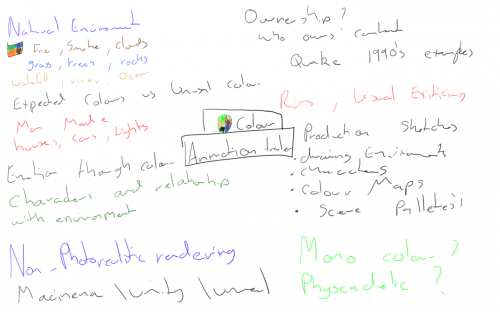 Natural Enviroment
Fire, Smoke, clouds
grass, trees, rocks
waterfall, river, Ocean
Expected Colours vs Unusual colour
Man Made
houses, Cars, Lights
Emotion though colour
Characters and relationship
with environment
Non-Photorealistic rendering
Macinema \unity \unreal
Ownership?
who owns content
Quake 1990's examples
Colour
Animation
Production Sketches
drawing Environments
characters
Colour Maps
Scene Palletes!
Mono colour?
Physcadelic?